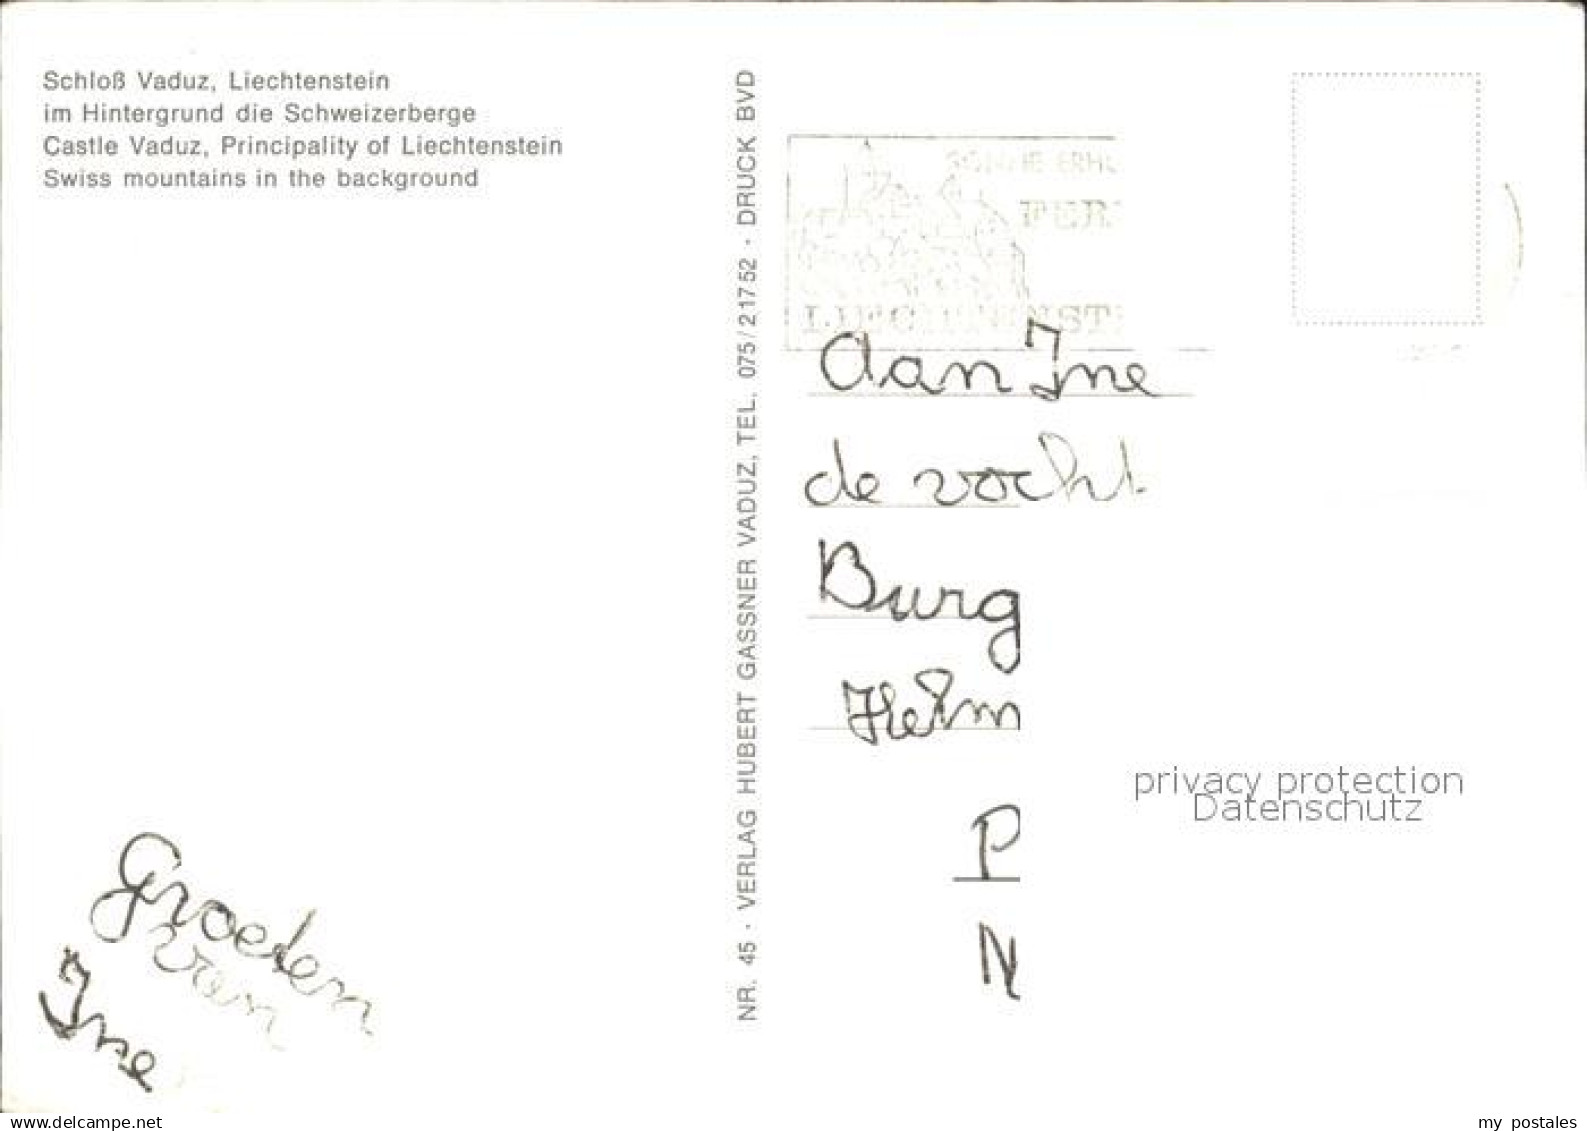 Schloß Vaduz, Liechtenstein
im Hintergrund die Schweizerberge
Castle Vaduz, Principality of Liechtenstein
Swiss mountains in the background
NR. 45 · VERLAG HUBERT GASSNER VADUZ, TEL. 075/21752 · DRUCK BVD
FER
LIECHTENST
Aan Ine
de vocht
Burg
Heim
P
N
privacy protection
Datenschutz
Groeten
van
Ine
www.delcampe.net
my_postales